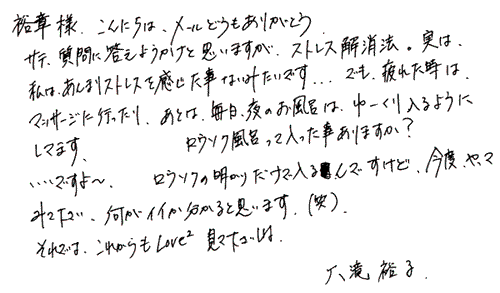 裕章様、こんにちは、メールどうもありがとう
サテ、質問に答えようかと思いますが、ストレス解消法。実は、
私は、あんまりストレスを感じた事ないみたいです... でも、疲れた時は、
マッサージに行ったり、あとは、毎日、夜のお風呂は、ゆーっくり入るように
してます、 ロウソク風呂って入った事ありますか?
いいですよ〜、 ロウソクの明かりだけで入るんですけど、今度、やって
みて下さい、何がイイか分かると思います、(笑)、
それでは、これからもLove² 見て下さいね、
大滝 裕子、